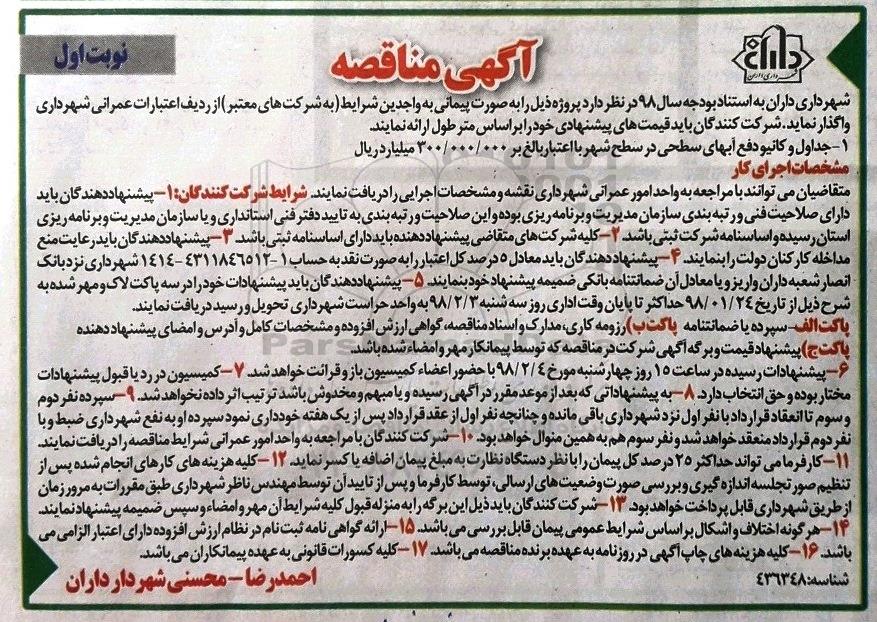 نوبت اول
آگهی مناقصه
داران
شهرداری داران
شهرداری داران به استناد بودجه سال ۹۸ در نظر دارد پروژه ذیل را به صورت پیمانی به واجدین شرایط (به شرکت های معتبر) از ردیف اعتبارات عمرانی شهرداری
واگذار نماید. شرکت کنندگان باید قیمت های پیشنهادی خود را بر اساس متر طول ارائه نمایند.
۱-جداول و کانیو دفع آبهای سطحی در سطح شهر با اعتبار بالغ بر ۳۰۰/۰۰۰/۰۰۰ میلیارد ریال
مشخصات اجرای کار
متقاضیان می توانند با مراجعه به واحد امور عمرانی شهرداری نقشه و مشخصات اجرایی را دریافت نمایند. شرایط شرکت کنندگان: ۱-پیشنهاد دهندگان باید
دارای صلاحیت فنی و رتبه بندی سازمان مدیریت و برنامه ریزی بوده و این صلاحیت و رتبه بندی به تایید دفتر فنی استانداری و یا سازمان مدیریت و برنامه ریزی
استان رسیده و اساسنامه شرکت ثبتی باشد. ۲-کلیه شرکت های متقاضی پیشنهاد دهنده باید دارای اساسنامه ثبتی باشد. ۳-پیشنهاد دهندگان باید رعایت منع
مداخله کارکنان دولت را بنمایند. ۴-پیشنهاد دهندگان باید معادل ۵ درصد کل اعتبار را به صورت نقد به حساب ۱-۴۳۱۱۸۴۶۵۱۲-۱۴۱۴ شهرداری نزد بانک
انصار شعبه داران واریز و یا معادل آن ضمانتنامه بانکی ضمیمه پیشنهاد خود بنمایند. ۵-پیشنهاد دهندگان باید پیشنهادات خود را در سه پاکت لاک و مهر شده به
شرح ذیل از تاریخ ۹۸/۰۱/۲۴ حداکثر تا پایان وقت اداری روز سه شنبه ۹۸/۲/۳ به واحد حراست شهرداری تحویل و رسید دریافت نمایند.
پاکت الف-سپرده یا ضمانتنامه پاکت ب) رزومه کاری، مدارک و اسناد مناقصه، گواهی ارزش افزوده و مشخصات کامل و آدرس و امضای پیشنهاد دهنده
پاکت ج) پیشنهاد قیمت و برگه آگهی شرکت در مناقصه که توسط پیمانکار مهر و امضاء شده باشد.
۶-پیشنهادات رسیده در ساعت ۱۵ روز چهارشنبه مورخ ۹۸/۲/۴ با حضور اعضاء کمیسیون باز و قرائت خواهد شد. ۷-کمیسیون در رد یا قبول پیشنهادات
مختار بوده و حق انتخاب دارد. ۸-به پیشنهاداتی که بعد از موعد مقرر در آگهی رسیده و یا مبهم و مخدوش باشد ترتیب اثر داده نخواهد شد. ۹-سپرده نفر دوم
و سوم تا انعقاد قرارداد با نفر اول نزد شهرداری باقی مانده و چنانچه نفر اول از عقد قرارداد پس از یک هفته خودداری نمود سپرده او به نفع شهرداری ضبط و با
نفر دوم قرارداد منعقد خواهد شد و نفر سوم هم به همین منوال خواهد بود. ۱۰-شرکت کنندگان با مراجعه به واحد امور عمرانی شرایط مناقصه را دریافت نمایند.
۱۱-کارفرما می تواند حداکثر ۲۵ درصد کل پیمان را با نظر دستگاه نظارت به مبلغ پیمان اضافه یا کسر نماید. ۱۲-کلیه هزینه های کارهای انجام شده پس از
تنظیم صورتجلسه اندازه گیری و بررسی صورت وضعیت های ارسالی، توسط کارفرما و پس از تایید آن توسط مهندس ناظر شهرداری طبق مقررات به مرور زمان
از طریق شهرداری قابل پرداخت خواهد بود. ۱۳-شرکت کنندگان باید ذیل این برگه را به منزله قبول کلیه شرایط آن مهر و امضاء و سپس ضمیمه پیشنهاد نمایند.
۱۴-هرگونه اختلاف و اشکال بر اساس شرایط عمومی پیمان قابل بررسی می باشد. ۱۵-ارائه گواهی نامه ثبت نام در نظام ارزش افزوده دارای اعتبار الزامی می
باشد. ۱۶-کلیه هزینه های چاپ آگهی در روزنامه به عهده برنده مناقصه می باشد. ۱۷-کلیه کسورات قانونی به عهده پیمانکاران می باشد.
شناسه: ۴۳۶۳۴۸
احمدرضا - محسنی شهردار داران